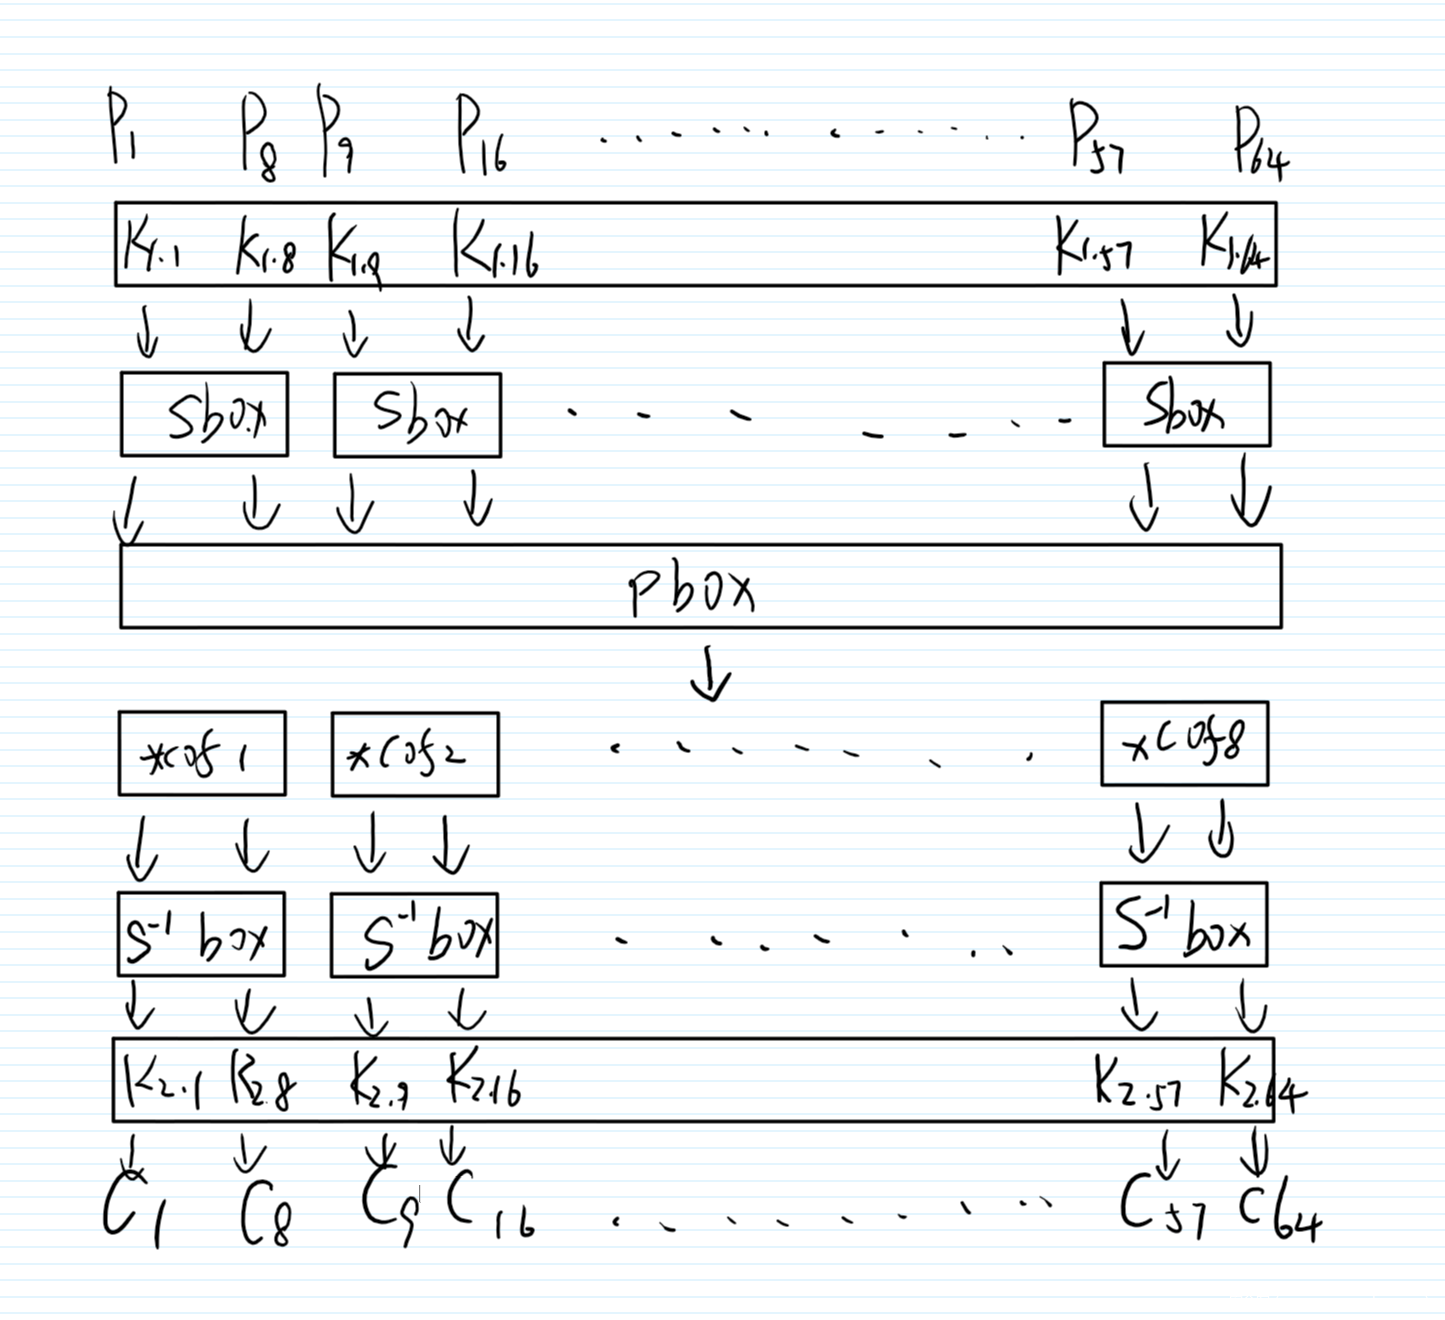 P1 P8 P9 P16 ................ P57 P64
K1.1 K1.8 K1.9 K1.16 K1.57 K1.64
Sbox Sbox ....... Sbox
Pbox
*cof1 *cof2 ....... *cof8
S⁻¹ box S⁻¹ box ........ S⁻¹ box
K2.1 K2.8 K2.9 K2.16 K2.57 K2.64
C1 C8 C9 C16 ......... C57 C64